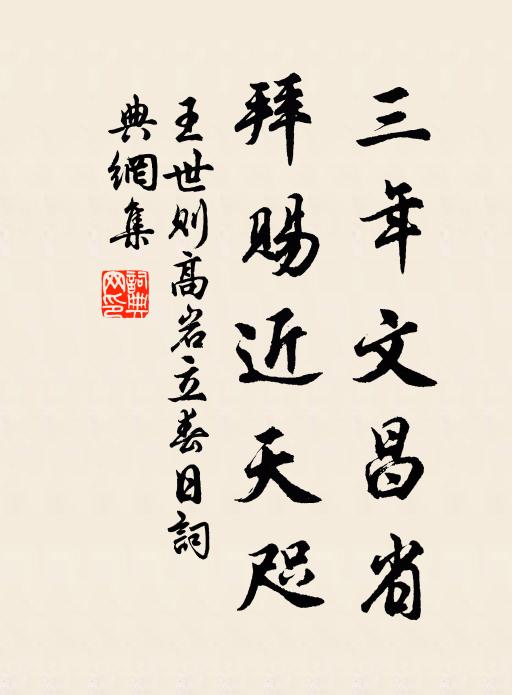 三年文昌省
拜賜近天咫
王世則高岩立春日詞
典網集
詞典網印